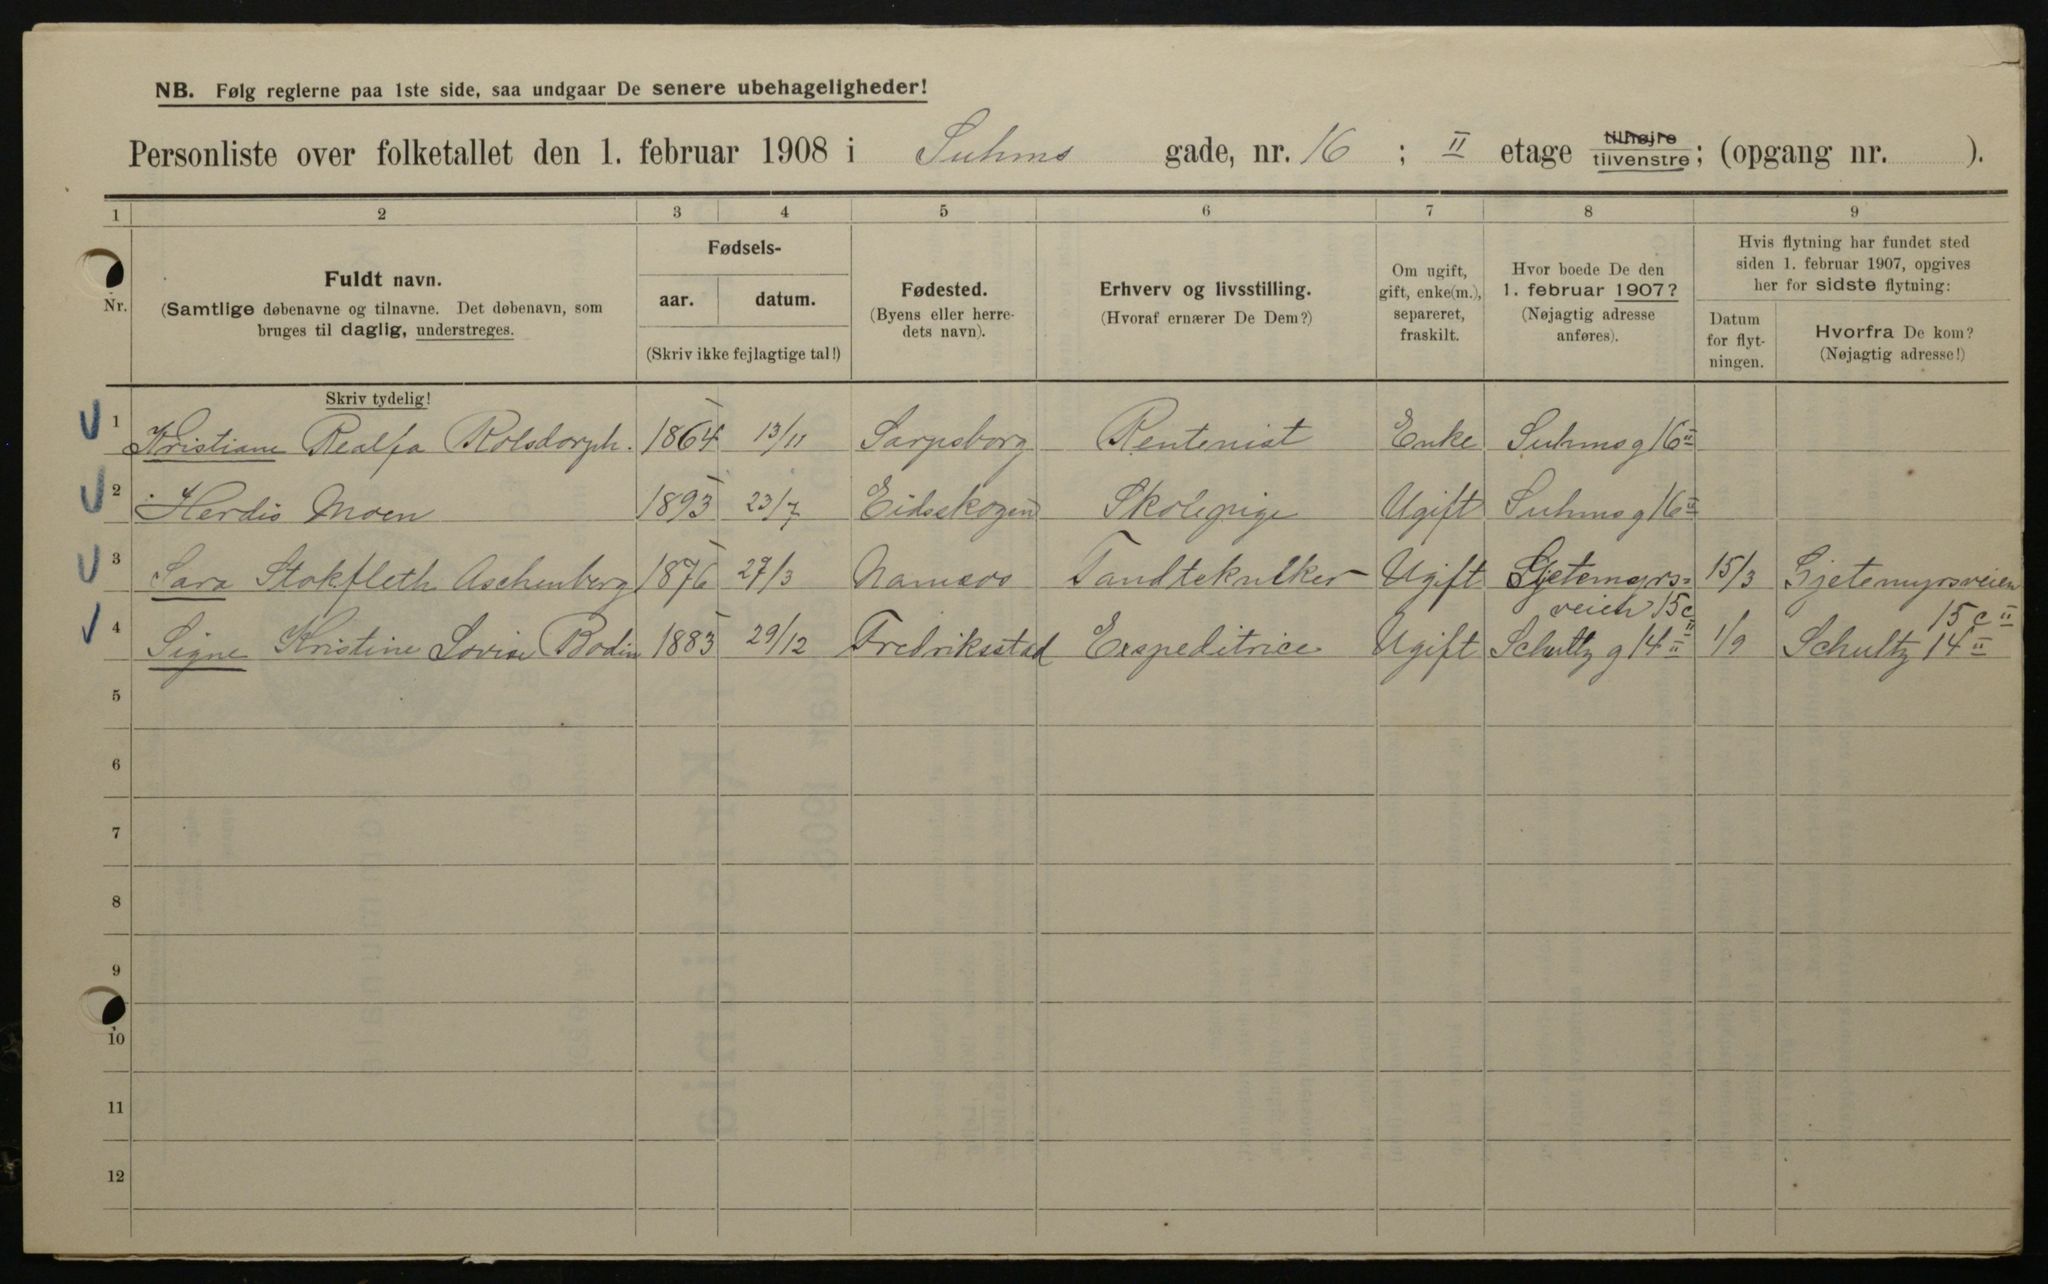 NB. Følg reglerne paa 1ste side, saa undgaar De senere ubehageligheder!
Personliste over folketallet den 1. februar 1908 i Suhms gade, nr. 16 ; II etage tilhøjre tilvenstre; (opgang nr. ).
1 2 3 4 5 6 7 8 9
Nr.
Fuldt navn.
(Samtlige døbenavne og tilnavne. Det døbenavn, som
bruges til daglig, understreges.
Skriv tydelig!
Fødsels-
aar. datum.
(Skriv ikke fejlagtige tal!)
Fødested.
(Byens eller herre-
dets navn).
Erhverv og livsstilling.
(Hvoraf ernærer De Dem?)
Om ugift,
gift, enke(m.),
separeret,
fraskilt.
Hvor boede De den
1. februar 1907?
(Nøjagtig adresse
anføres).
Hvis flytning har fundet sted
siden 1. februar 1907, opgives
her for sidste flytning:
Datum
for flyt-
ningen.
Hvorfra De kom?
(Nøjagtig adresse!)
1 Kristiane Realfa Rolsdorph. 1864 13/11 Sarpsborg Rentenist Enke Suhmsg 16 II
2 Herdis Moen 1893 23/7 Eidsskogen Skolepige Ugift Suhmsg 16 II
3 Sara Stokfleth Aschenberg 1876 29/3 Namsos Tandtekniker Ugift Gjetemyrs- 15/3 Gjetemyrsveien
veien 15c II 15 c II
4 Signe Kristine Lovise Bodin 1883 29/12 Fredriksstad Exspeditrice Ugift Schultz g 14 II 1/9 Schultz 14 II
5
6
7
8
9
10
11
12